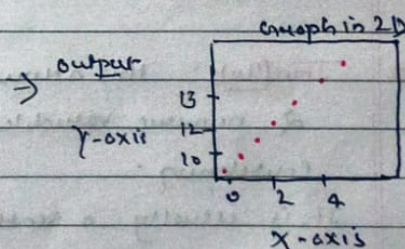 Graph in 2D
⇒ output
13
Y-axis 12
10
0 2 4
X-axis